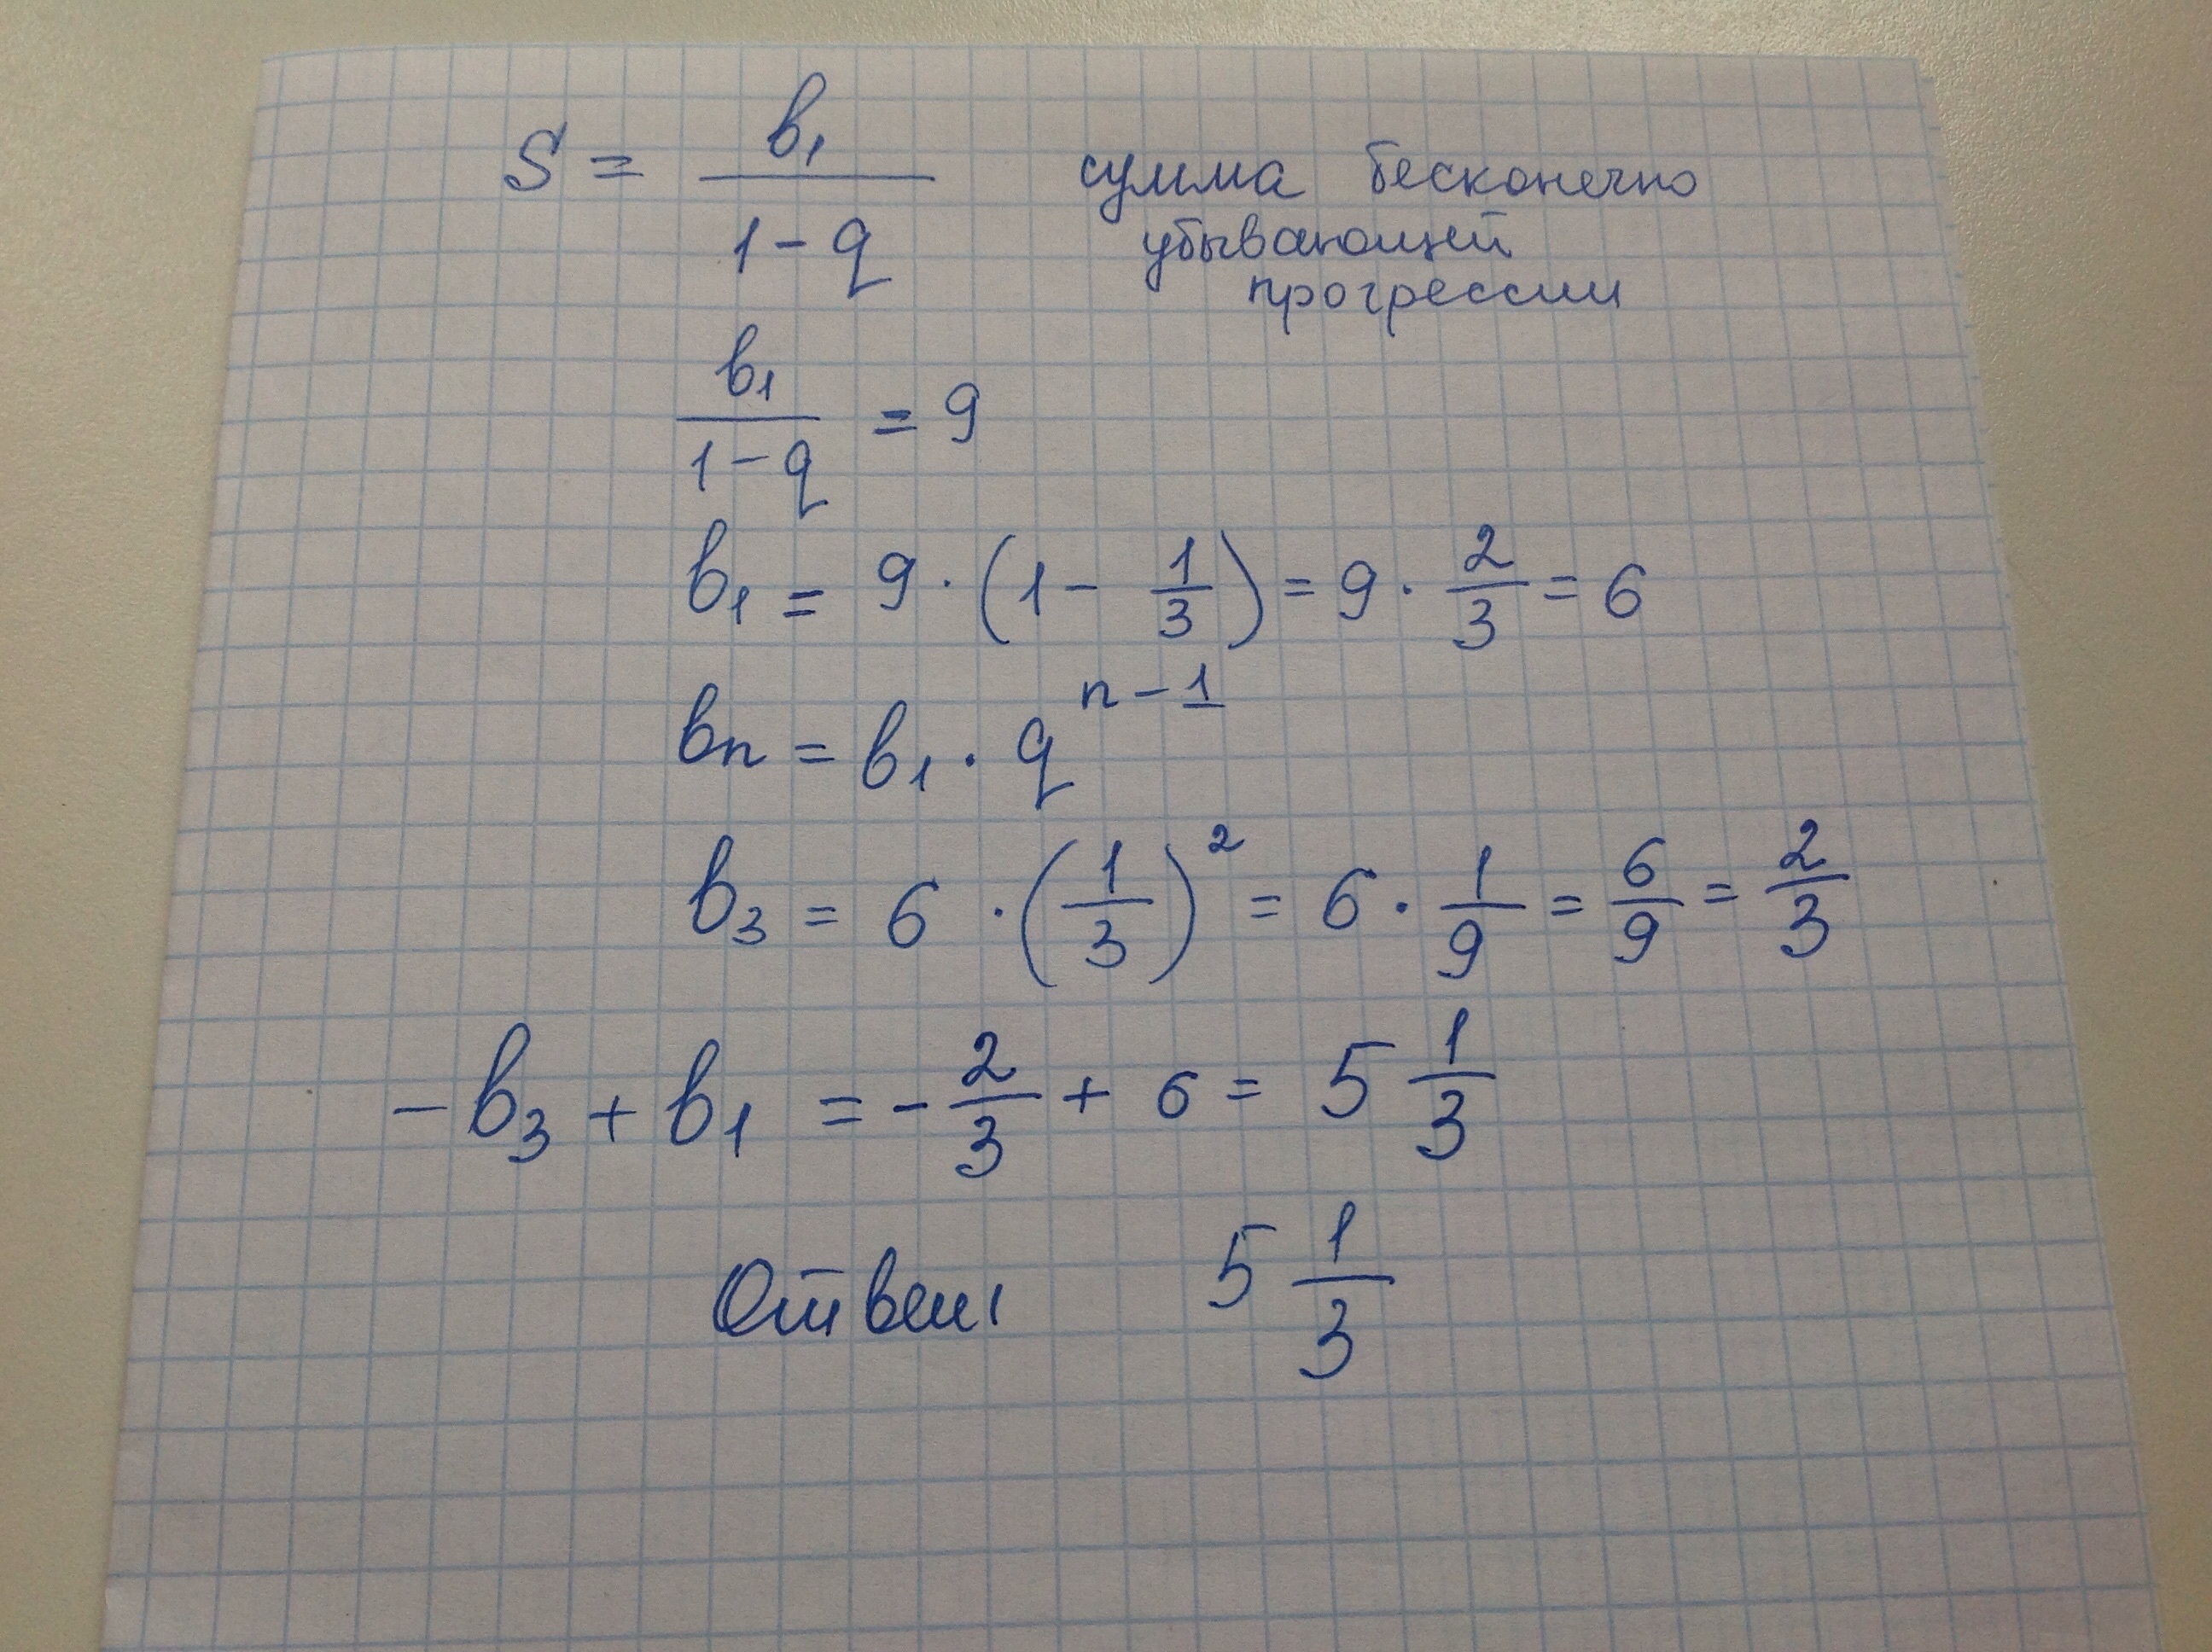 S = b₁ / (1 - q) сумма бесконечно
убывающей
прогрессии
b₁ / (1 - q) = 9
b₁ = 9 · (1 - 1/3) = 9 · 2/3 = 6
bn = b₁ · q^(n-1)
b₃ = 6 · (1/3)² = 6 · 1/9 = 6/9 = 2/3
- b₃ + b₁ = - 2/3 + 6 = 5 1/3
Ответ 5 1/3